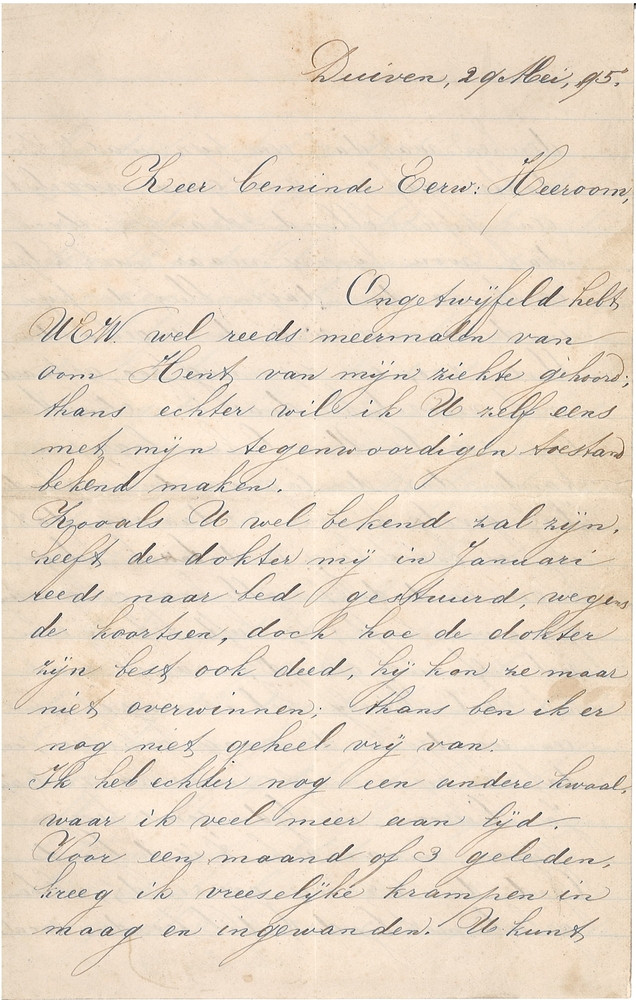 Duiven, 29 Mei, 95.
Zeer Beminde Eerw: Heeroom,
Ongetwijfeld hebt
UEW. wel reeds meermalen van
oom Hent van mijn ziekte gehoord;
thans echter wil ik U zelf eens
met mijn tegenwoordigen toestand
bekend maken.
Zooals U wel bekend zal zijn,
heeft de dokter mij in Januari
reeds naar bed gestuurd, wegens
de koortsen, doch hoe de dokter
zijn best ook deed, hij kon ze maar
niet overwinnen; thans ben ik er
nog niet geheel vrij van.
Ik heb echter nog een andere kwaal,
waar ik veel meer aan lijd.
Voor een maand of 3 geleden,
kreeg ik vreeselijke krampen in
maag en ingewanden. U kunt